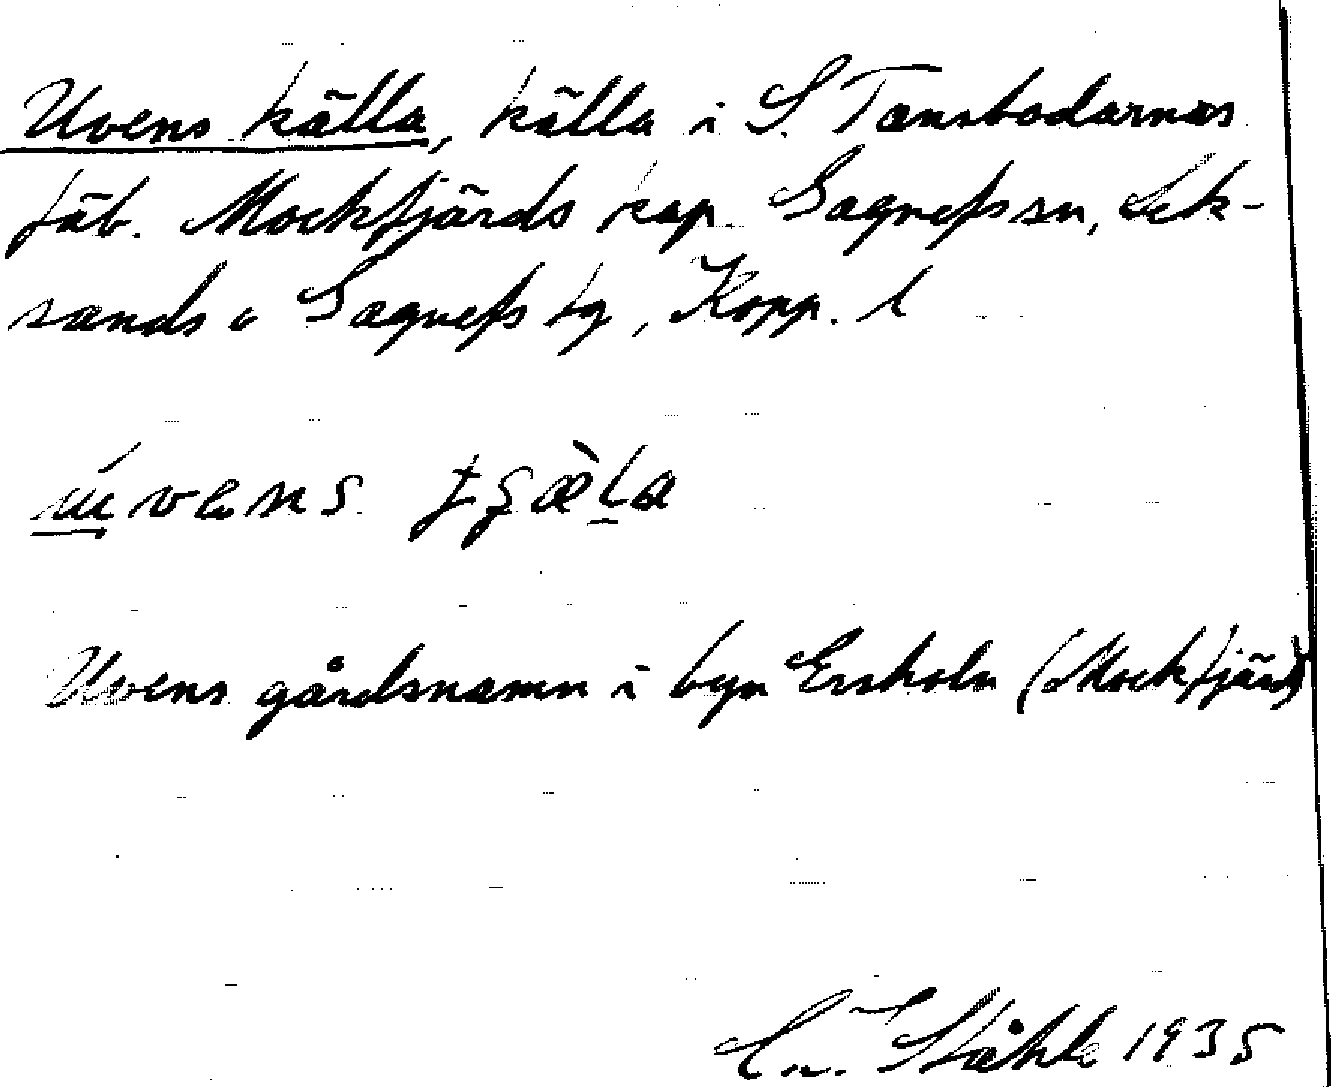 Uvens källa, källa i S. Tansbodarnas
fäb. Mockfjärds kap. Gagnefs sn, Lek-
sands o Gagnefs tg, Kopp. l
Uvens gårdsnamn i byn Ersholn (Mockfjärd)
Ståhle 1935